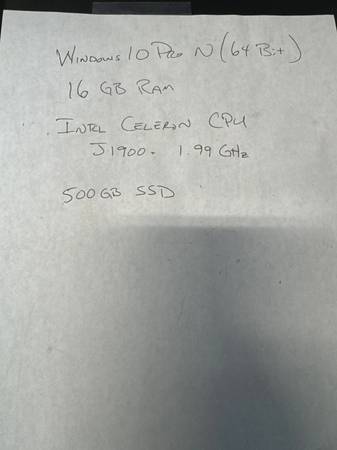 Windows 10 Pro N (64 Bit)
16 GB Ram
Intel Celeron CPU
J1900. 1.99 GHz
500GB SSD